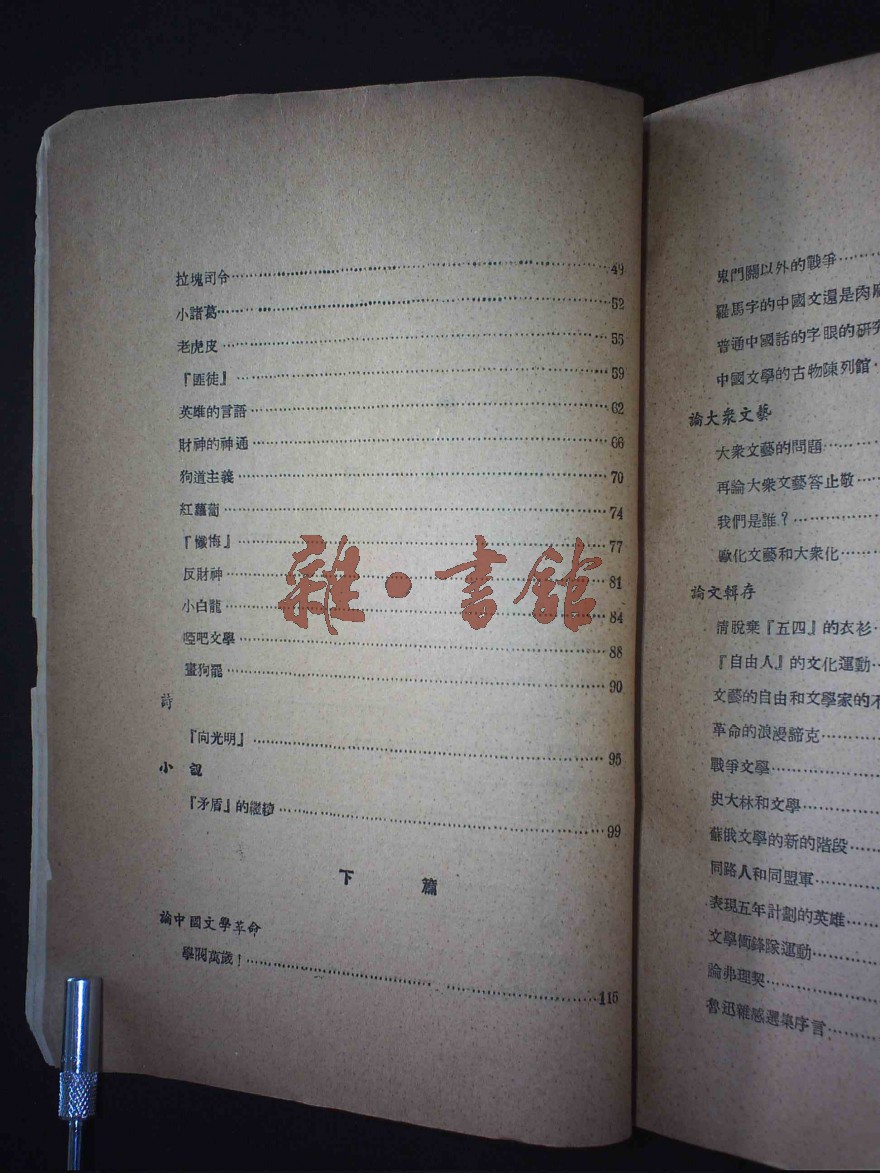 拉塊司令……49
小諸葛……52
老虎皮……55
『匪徒』……59
英雄的言語……62
財神的神通……66
狗道主義……70
紅蘿蔔……74
『懺悔』……77
反財神……81
小白龍……84
啞吧文學……88
畫狗罷……90
詩
『向光明』……95
小說
『矛盾』的繼續……99
下篇
論中國文學革命
學閥萬歲！……115
鬼門關以外的戰爭……
羅馬字的中國文還是肉麻
普通中國話的字眼的研究
中國文學的古物陳列館
論大衆文藝
大衆文藝的問題……
再論大衆文藝答止敬……
我們是誰？……
歐化文藝和大衆化……
論文輯存
請脫棄『五四』的衣衫
『自由人』的文化運動……
文藝的自由和文學家的不
革命的浪漫諦克……
戰爭文學……
史大林和文學……
蘇俄文學的新的階段……
同路人和同盟軍……
表現五年計劃的英雄……
文學衝鋒隊運動……
論弗理契……
魯迅雜感選集序言……
雜·書館